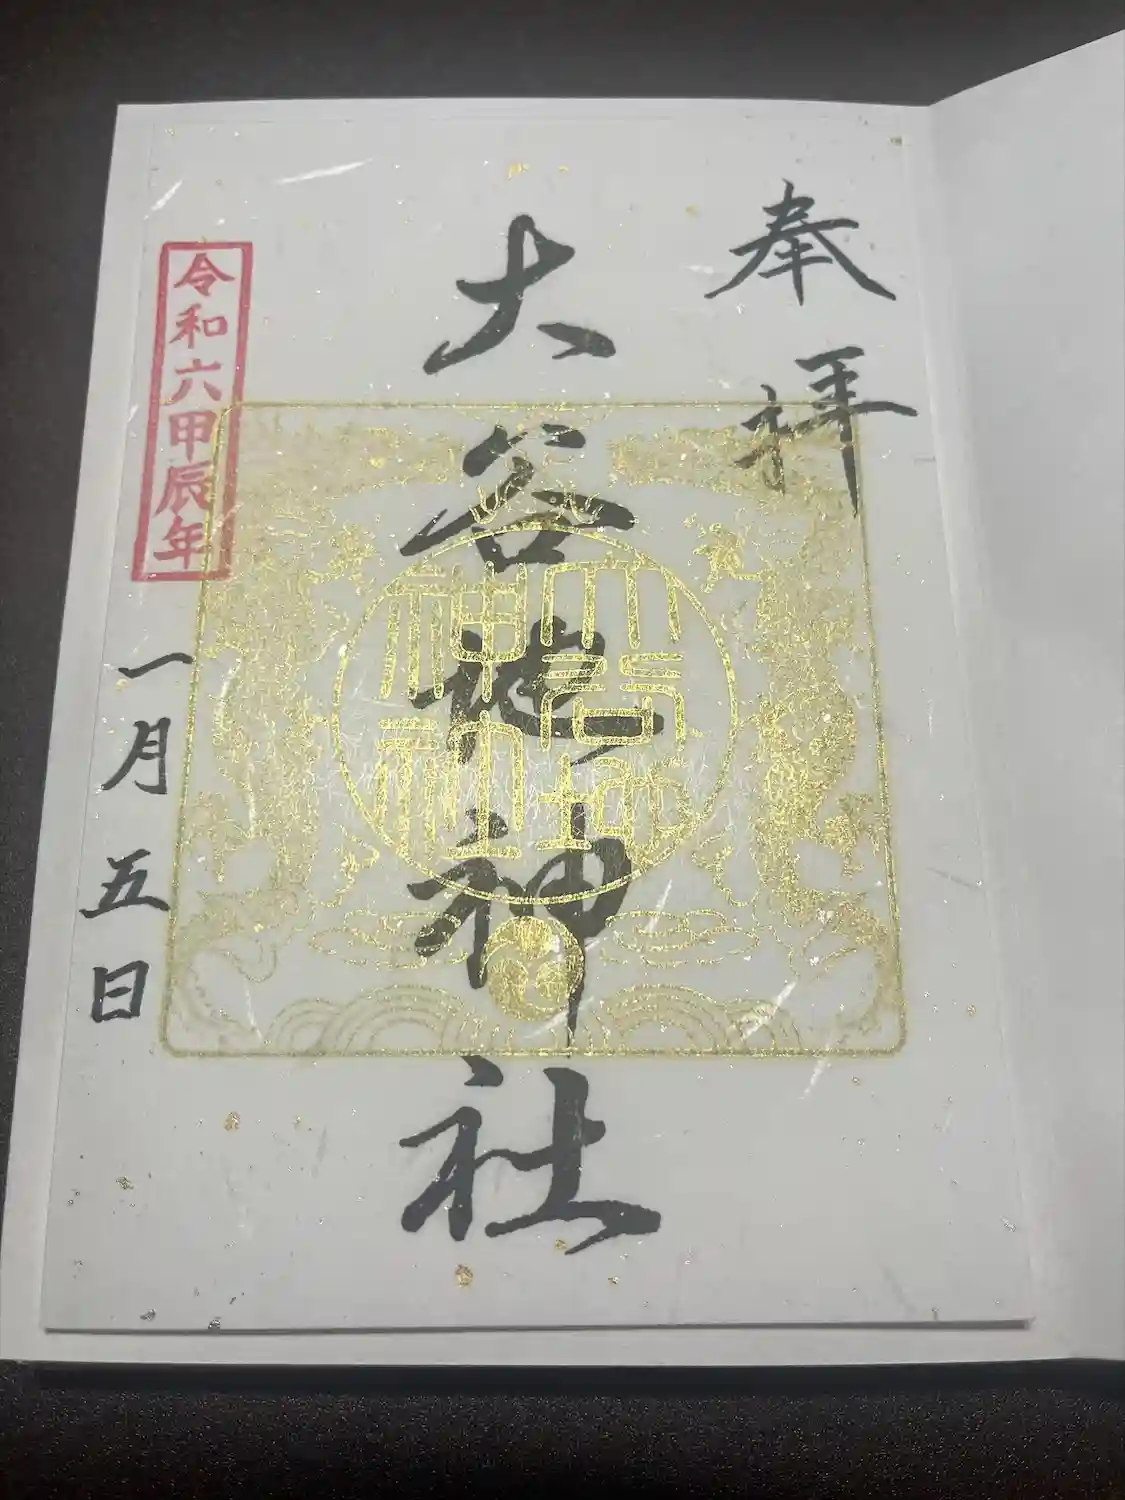 奉拝
大谷地神社
大谷地神社
令和六甲辰年
一月五日